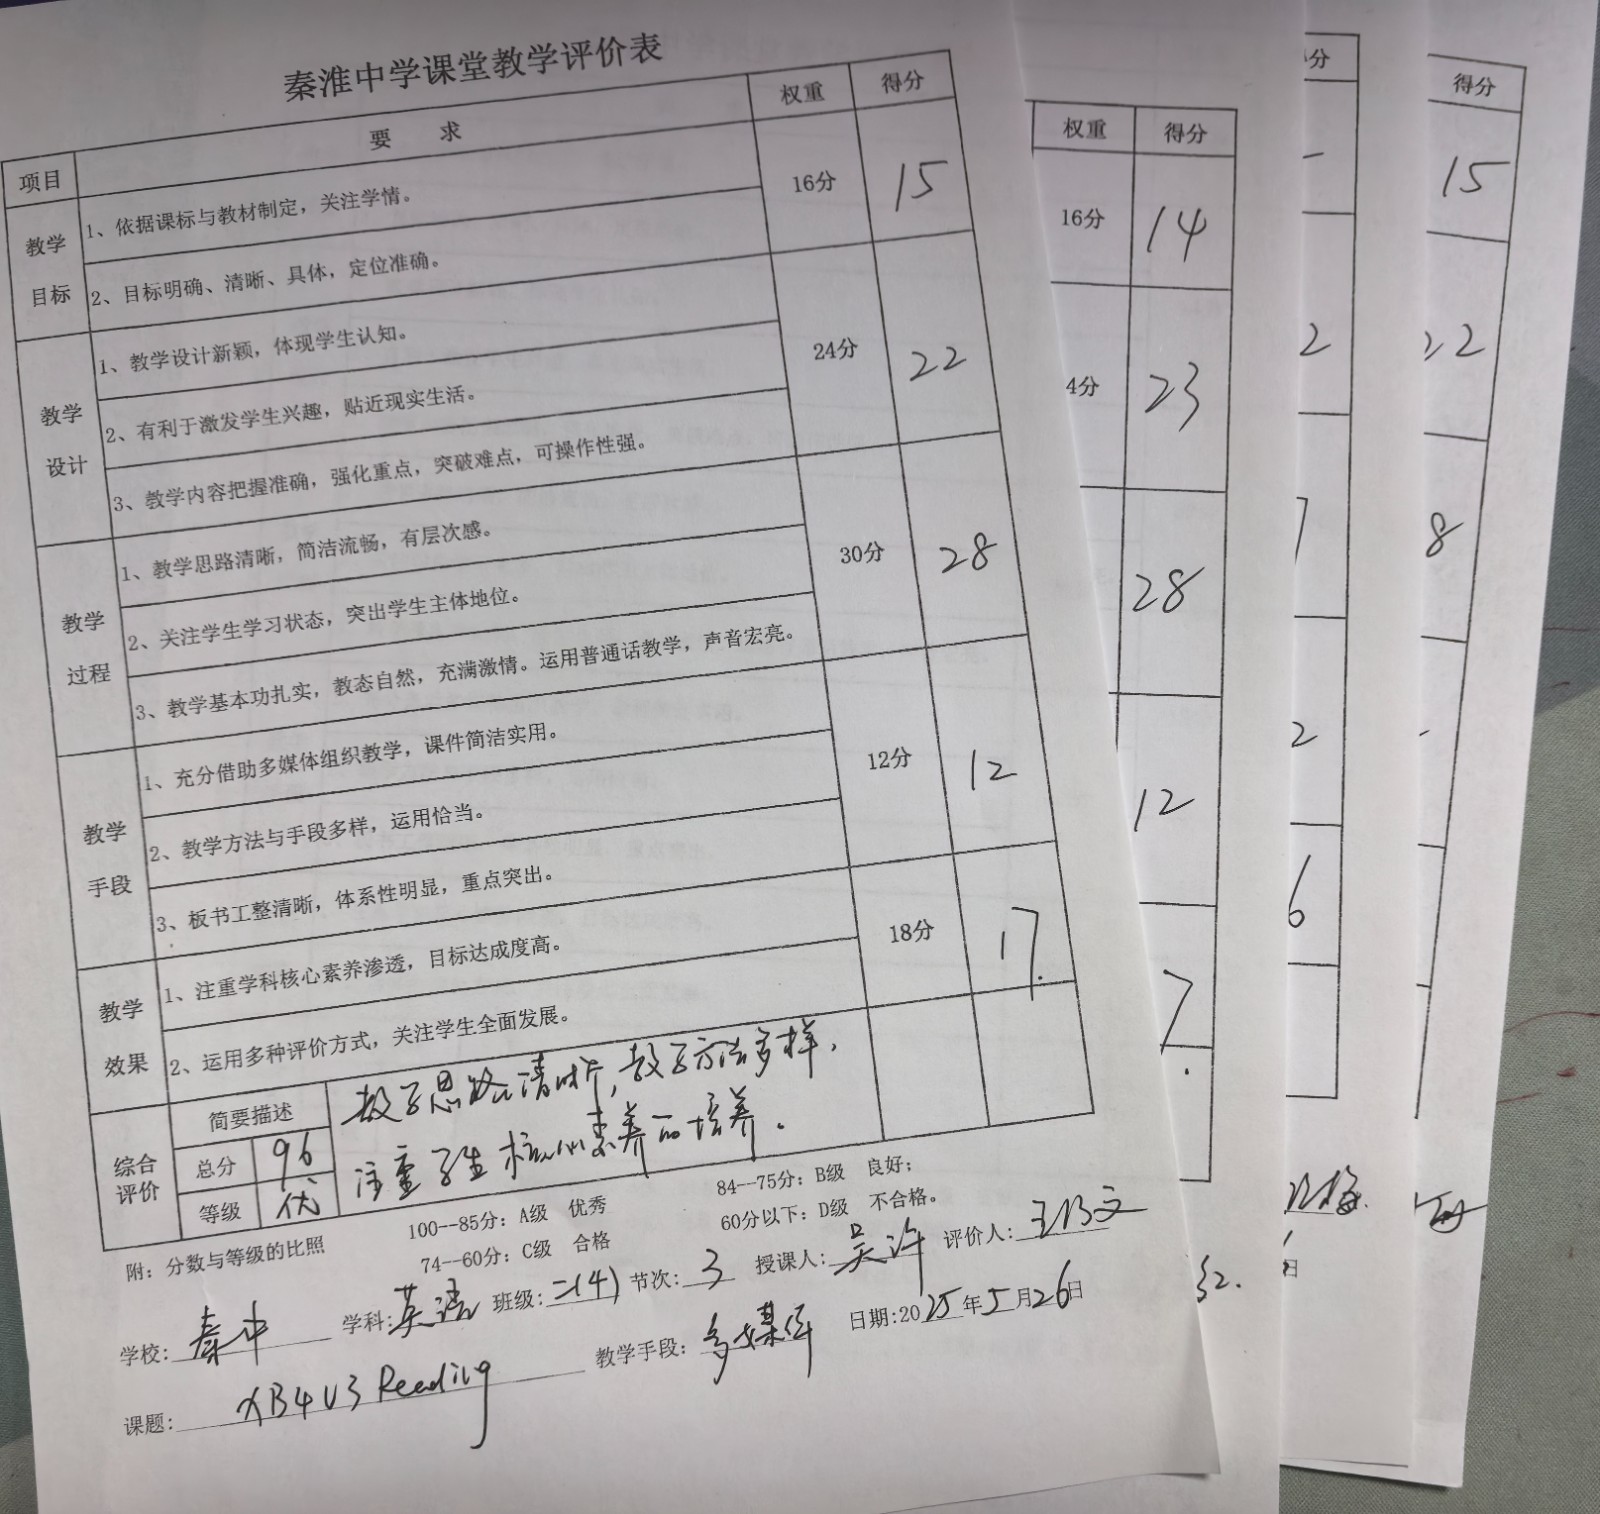 秦淮中学课堂教学评价表
项目 要 求 权重 得分
教学目标 1、依据课标与教材制定，关注学情。 16分 15
2、目标明确、清晰、具体，定位准确。
教学设计 1、教学设计新颖，体现学生认知。 24分 22
2、有利于激发学生兴趣，贴近现实生活。
3、教学内容把握准确，强化重点，突破难点，可操作性强。
教学过程 1、教学思路清晰，简洁流畅，有层次感。 30分 28
2、关注学生学习状态，突出学生主体地位。
3、教学基本功扎实，教态自然，充满激情。运用普通话教学，声音宏亮。
教学手段 1、充分借助多媒体组织教学，课件简洁实用。 12分 12
2、教学方法与手段多样，运用恰当。
3、板书工整清晰，体系性明显，重点突出。
教学效果 1、注重学科核心素养渗透，目标达成度高。 18分 17
2、运用多种评价方式，关注学生全面发展。
综合评价 简要描述 教学思路清晰，教学方法多样，
总分 96 注重学生核心素养的培养。
等级 优
附：分数与等级的比照 100--85分：A级 优秀 84--75分：B级 良好；
74--60分：C级 合格 60分以下：D级 不合格。
学校: 秦中 学科: 英语 班级: 二(4) 节次: 3 授课人: 吴许 评价人:
课题: XB4U3 Reading 教学手段: 多媒体 日期:2025年5月26日
权重 得分
16分 14
4分 23
28
12
7.
分
2
7
2
6
日
得分
15
22
8